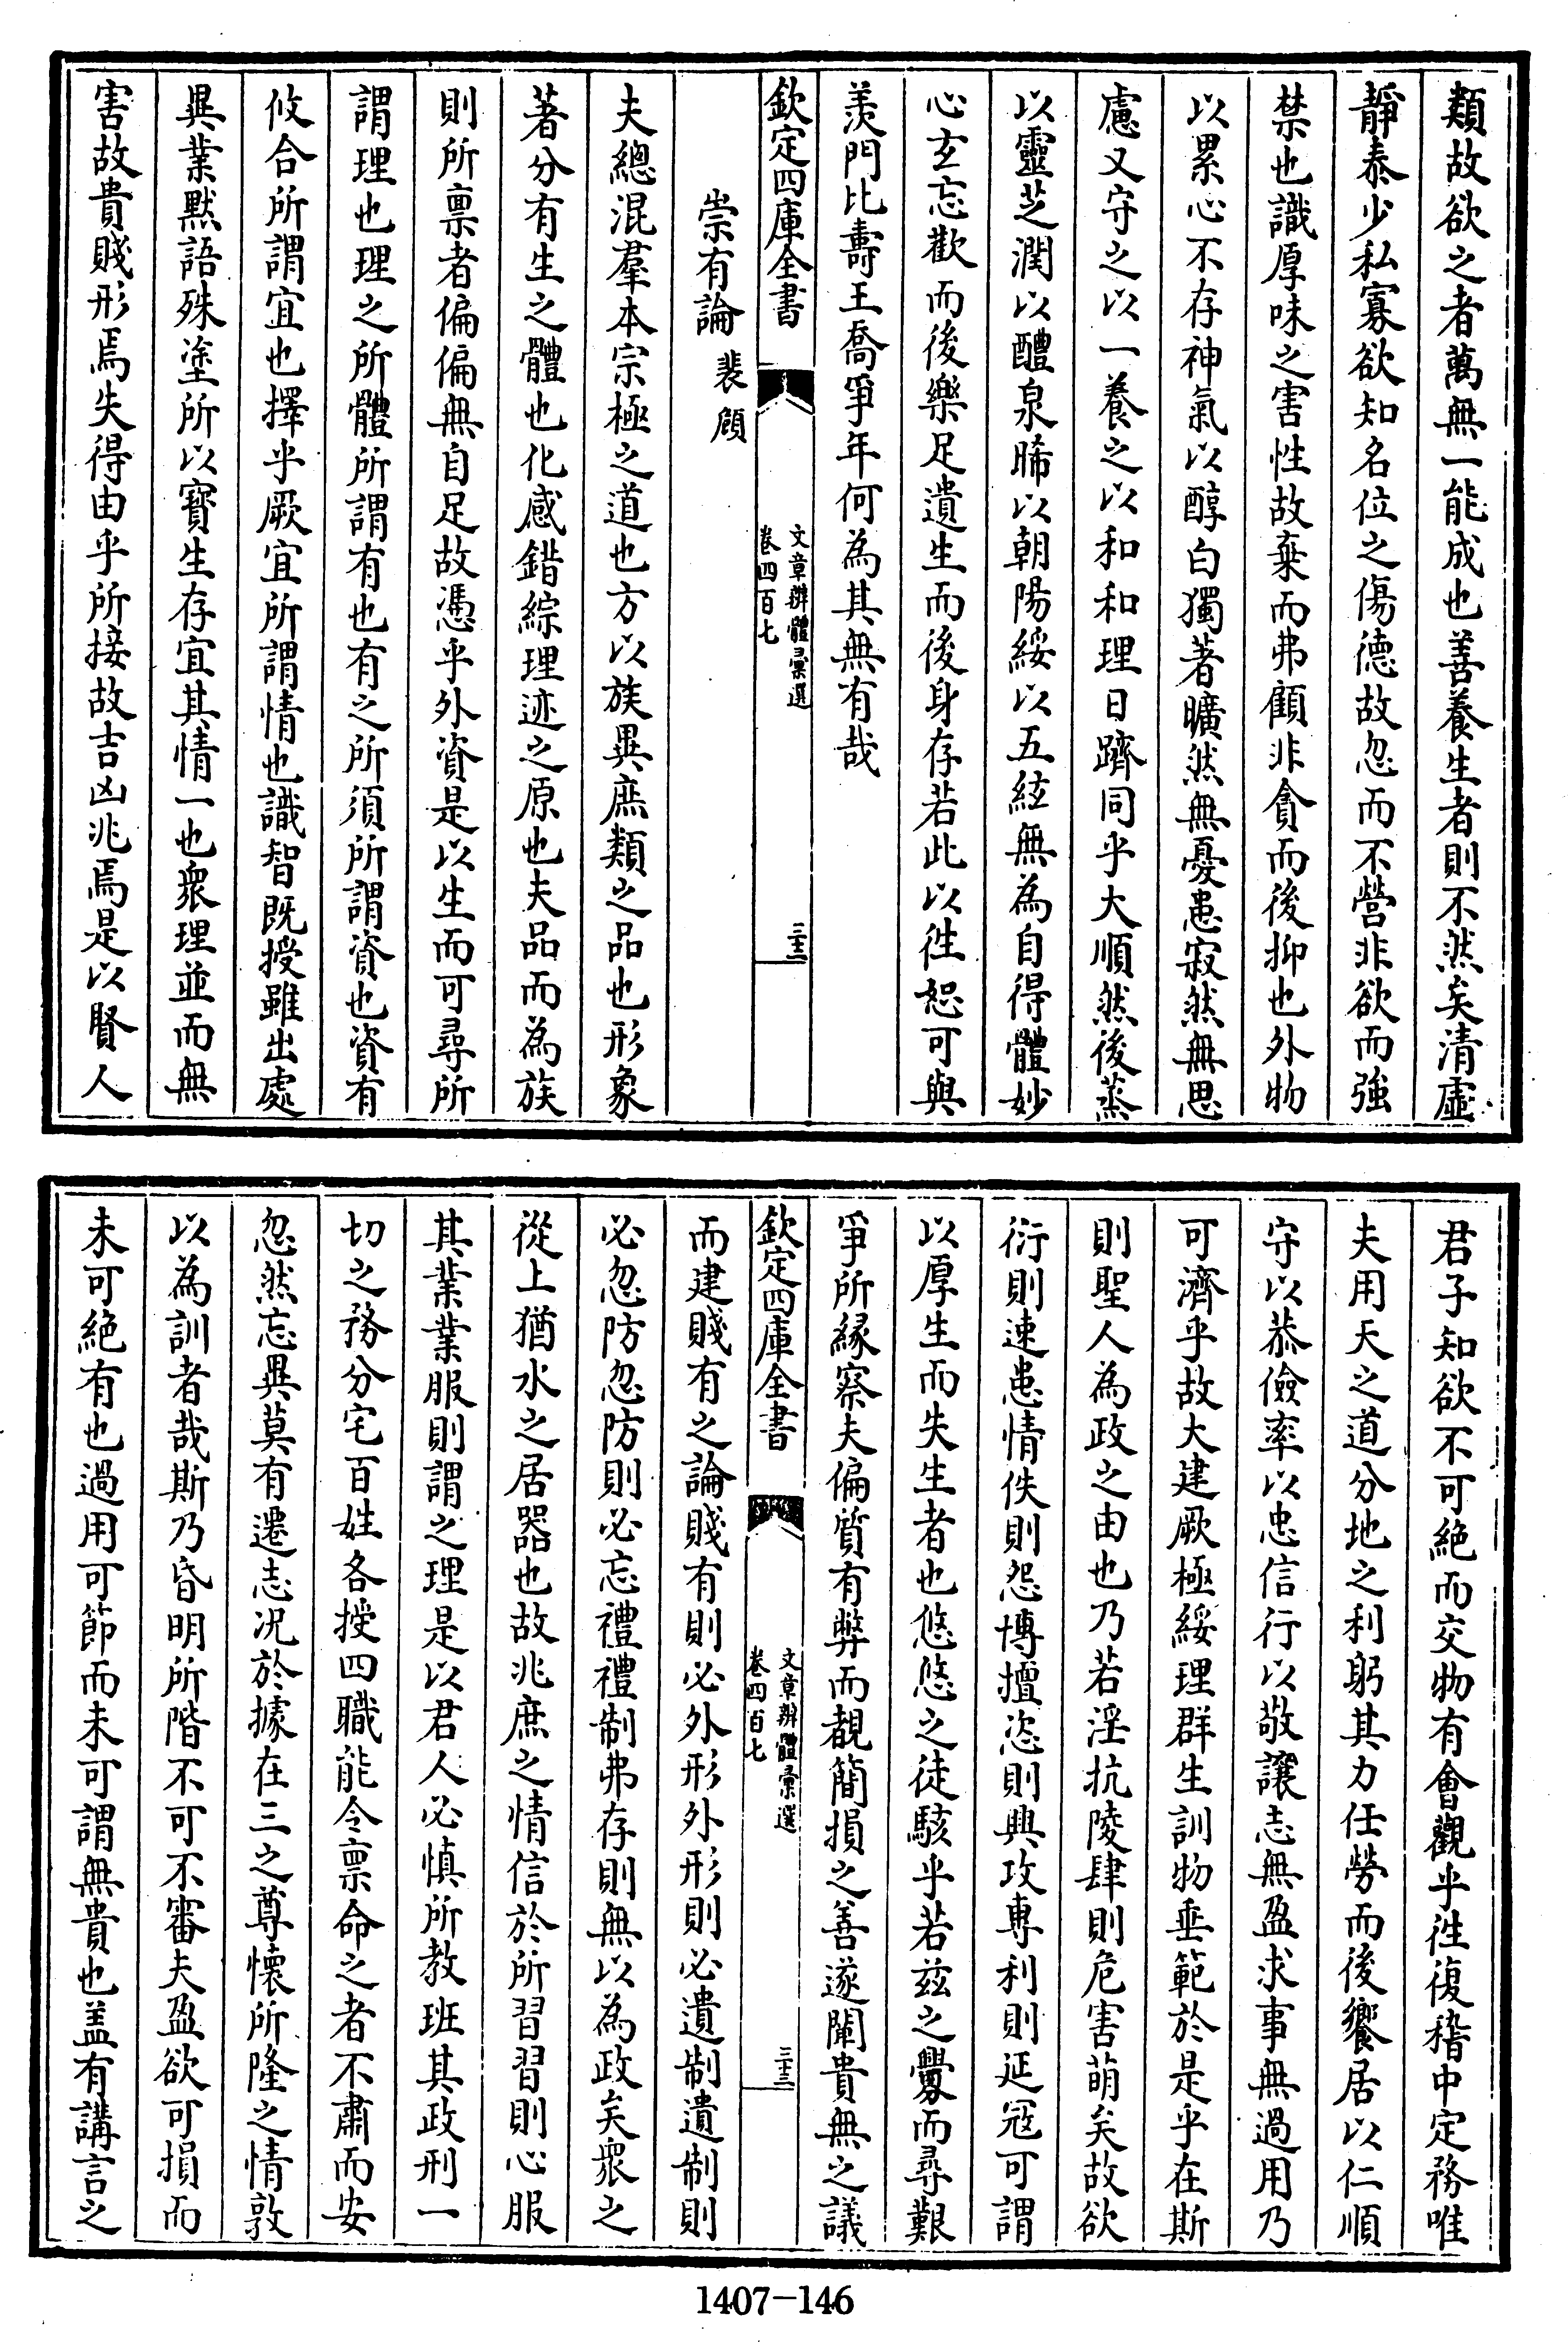 類故欲之者萬無一能成也善養生者則不然矣清虛
靜泰少私寡欲知名位之傷德故忽而不營非欲而強
禁也識厚味之害性故棄而弗顧非貪而後抑也外物
以累心不存神氣以醇白獨著曠然無憂患寂然無思
慮又守之以一養之以和和理日躋同乎大順然後蒸
以靈芝潤以醴泉晞以朝陽綏以五絃無為自得體妙
心玄忘歡而後樂足遺生而後身存若此以徃恕可與
羨門比壽王喬爭年何為其無有哉
欽定四庫全書
文章辨體彚選
卷四百七
三十二
崇有論 裴頠
夫總混羣本宗極之道也方以族異庶類之品也形象
著分有生之體也化感錯綜理迹之原也夫品而為族
則所禀者偏偏無自足故憑乎外資是以生而可尋所
謂理也理之所體所謂有也有之所須所謂資也資有
攸合所謂宜也擇乎厥宜所謂情也識智既授雖出處
異業黙語殊塗所以寳生存宜其情一也衆理並而無
害故貴賤形焉失得由乎所接故吉凶兆焉是以賢人
君子知欲不可絶而交物有會觀乎徃復稽中定務唯
夫用天之道分地之利躬其力任勞而後饗居以仁順
守以恭儉率以忠信行以敬讓志無盈求事無過用乃
可濟乎故大建厥極綏理群生訓物垂範於是乎在斯
則聖人為政之由也乃若淫抗陵肆則危害萌矣故欲
衍則速患情佚則怨博擅恣則興攻專利則延冦可謂
以厚生而失生者也悠悠之徒駭乎若兹之釁而尋艱
爭所縁察夫偏質有弊而覩簡損之善遂闡貴無之議
欽定四庫全書
文章辨體彚選
卷四百七
三十三
而建賤有之論賤有則必外形外形則必遺制遺制則
必忽防忽防則必忘禮禮制弗存則無以為政矣衆之
從上猶水之居器也故兆庶之情信於所習習則心服
其業業服則謂之理是以君人必慎所教班其政刑一
切之務分宅百姓各授四職能令禀命之者不肅而安
忽然忘異莫有遷志况於據在三之尊懷所隆之情敦
以為訓者哉斯乃昏明所階不可不審夫盈欲可損而
未可絶有也過用可節而未可謂無貴也盖有講言之
1407-146